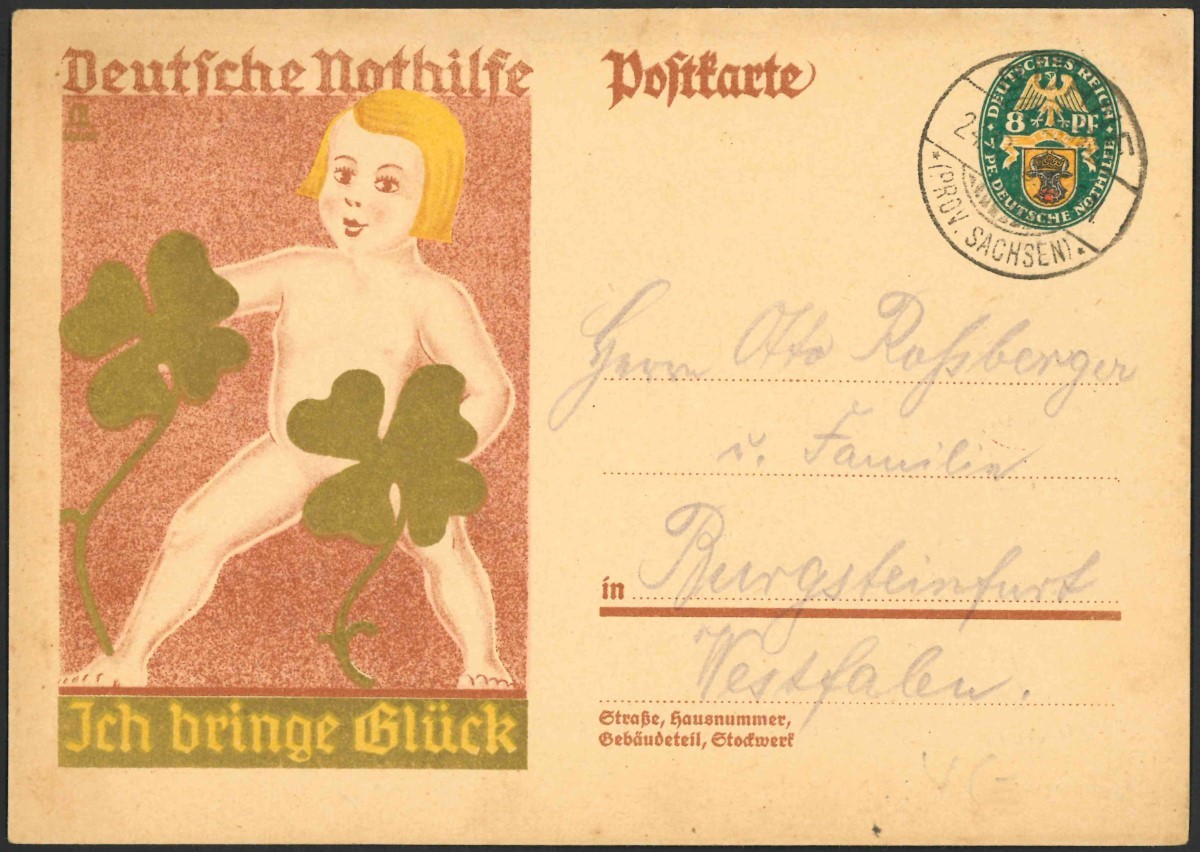 Deutsche Nothilfe
Ich bringe Glück
Postkarte
DEUTSCHES REICH
8 PF
7 PF. DEUTSCHE NOTHILFE
(PROV. SACHSEN)
Herrn Otto Roßberger
u. Familie
in Burgsteinfurt
Westfalen.
Straße, Hausnummer,
Gebäudeteil, Stockwerk